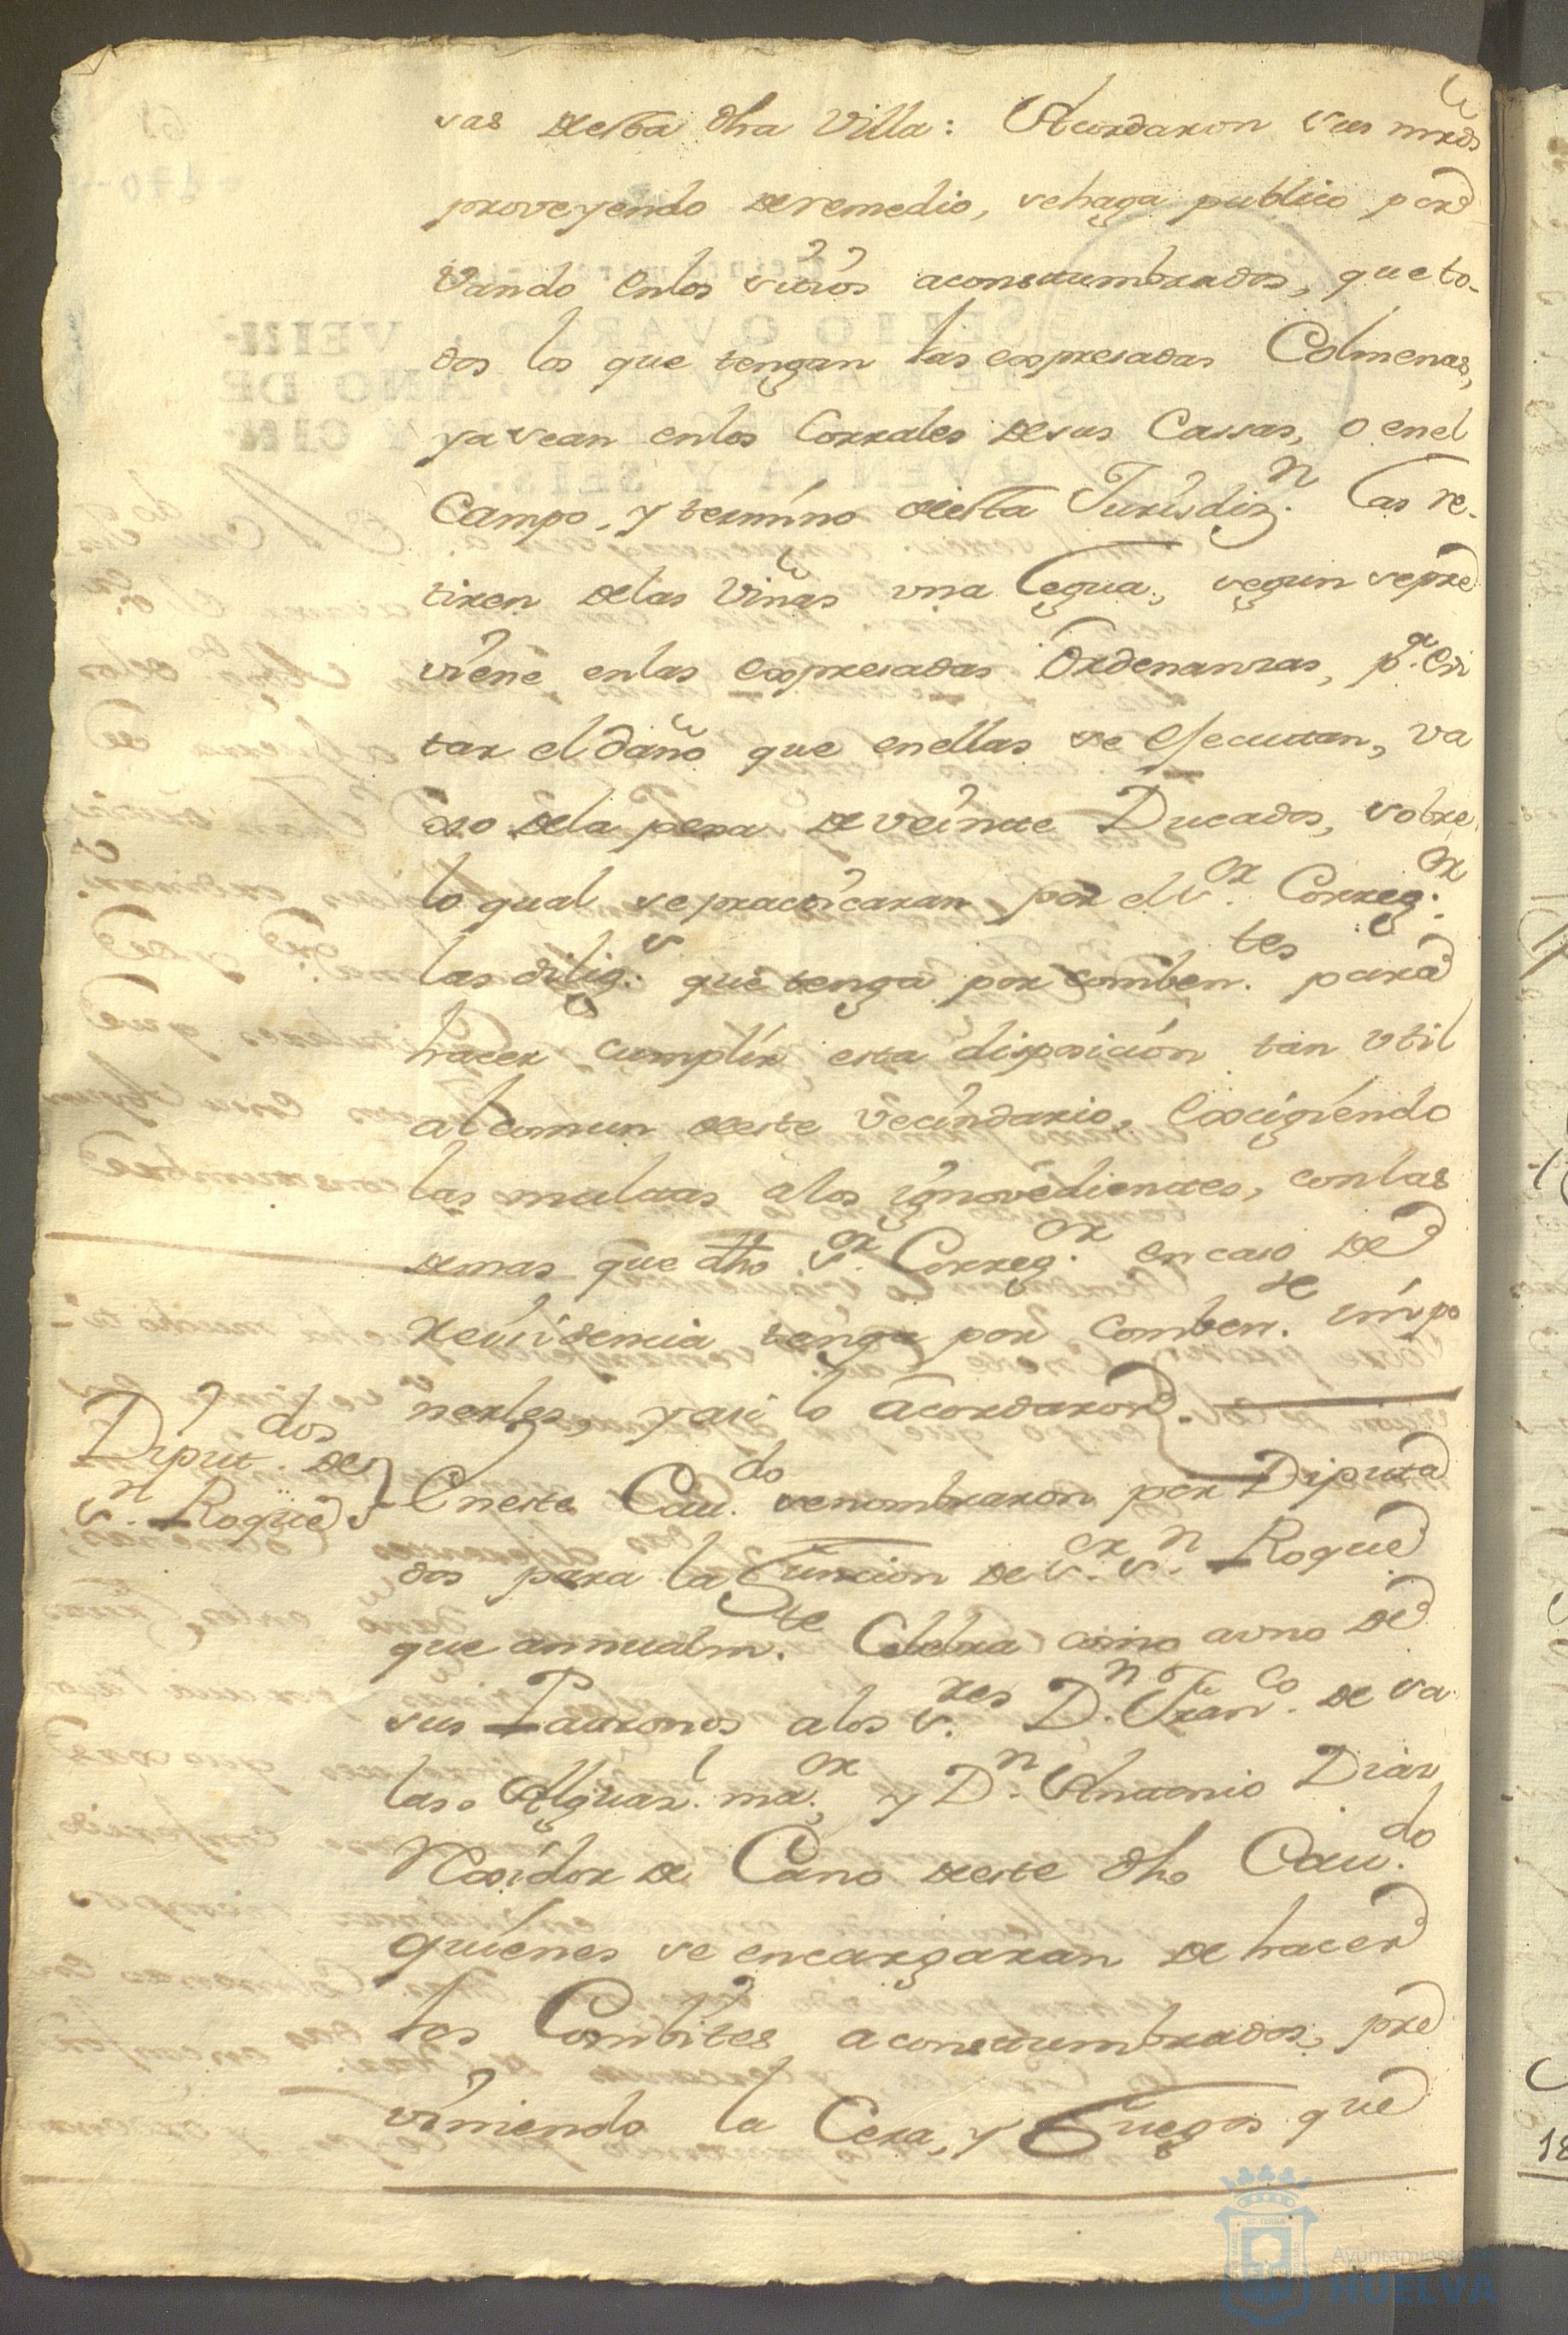 sas desta dha Villa: Acordaron sus mrds
proveyendo de remedio, se haga publico por
Vando en los sitios acostumbrados, que to-
dos los que tengan las expresadas Colmenas,
ya sean en los Corrales de sus Cassas, o en el
Campo, y termino desta Jurisdizn. las re-
tiren de las Viñas una Legua, segun se pre
viene en las expresadas Ordenanzas, pa. evi
tar el daño que en ellas se esecutan, va
xo de la pena de veinte Ducados, sobre
lo qual se practicaran por el sor. Correg.or
las dilig.s que tenga por comben.tes para
hacer cumplir esta disposicion tan util
al comun deste vecindario, Exigiendo
las multas a los ignovedientes, con las
demas que dho sor. Correg.or en caso de
Reincidencia tenga por Comben.te impo
nerles, y asi lo acordaron.
Diput.dos de
Sn. Roque
En este Cau.do se nombraron por Diputa
dos para la Funcion de sor. sn. Roque
que annualm.te Celebra como a uno de
sus Patronos a los s.res Dn. Fran.co de Sa
las Alguazl. ma.or y Dn. Antonio Diaz
Rexidor de Cano deste dho Cau.do
quienes se encargaran de hacer
los Combites acostumbrados, pre
viniendo la Cera, y Fuegos que
Ayuntamiento
HUELVA